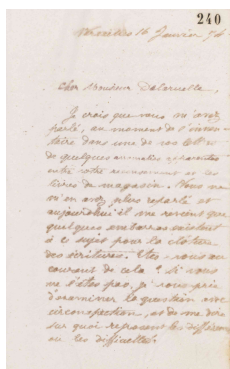 240
Versailles 16 Janvier 94
Cher Monsieur Delaruelle,
Je crois que vous m'avez
parlé, au moment de l'inven-
taire dans une de vos lettres
de quelques anomalies apparentes
entre votre recensement et ces
livres de magasin. Vous ne
m'en avez plus reparlé et
aujourd'hui il me revient que
quelques embarras existent
à ce sujet pour la clôture
des écritures. Êtes-vous au
courant de cela ? Si vous
ne l'êtes pas, je vous prie
d'examiner la question avec
circonspection, et de me dire
sur quoi reposent les différences
ou les difficultés.